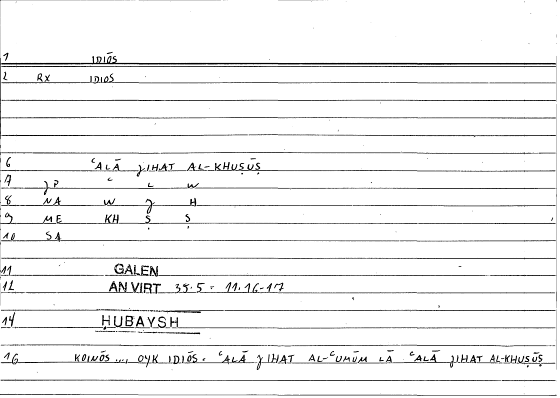 1 IDIŌS
2 RX IDIOS
6 ʿALĀ ǦIHAT AL-KHUṢŪṢ
7 JP ʿ L W
8 NA W J H
9 ME KH Ṣ Ṣ
10 SA
11 GALEN
12 AN VIRT 35.5 = 11.16-17
14 ḤUBAYSH
16 KOINŌS ..., OYK IDIŌS = ʿALĀ JIHAT AL-ʿUMŪM LĀ ʿALĀ JIHAT AL-KHUṢŪṢ